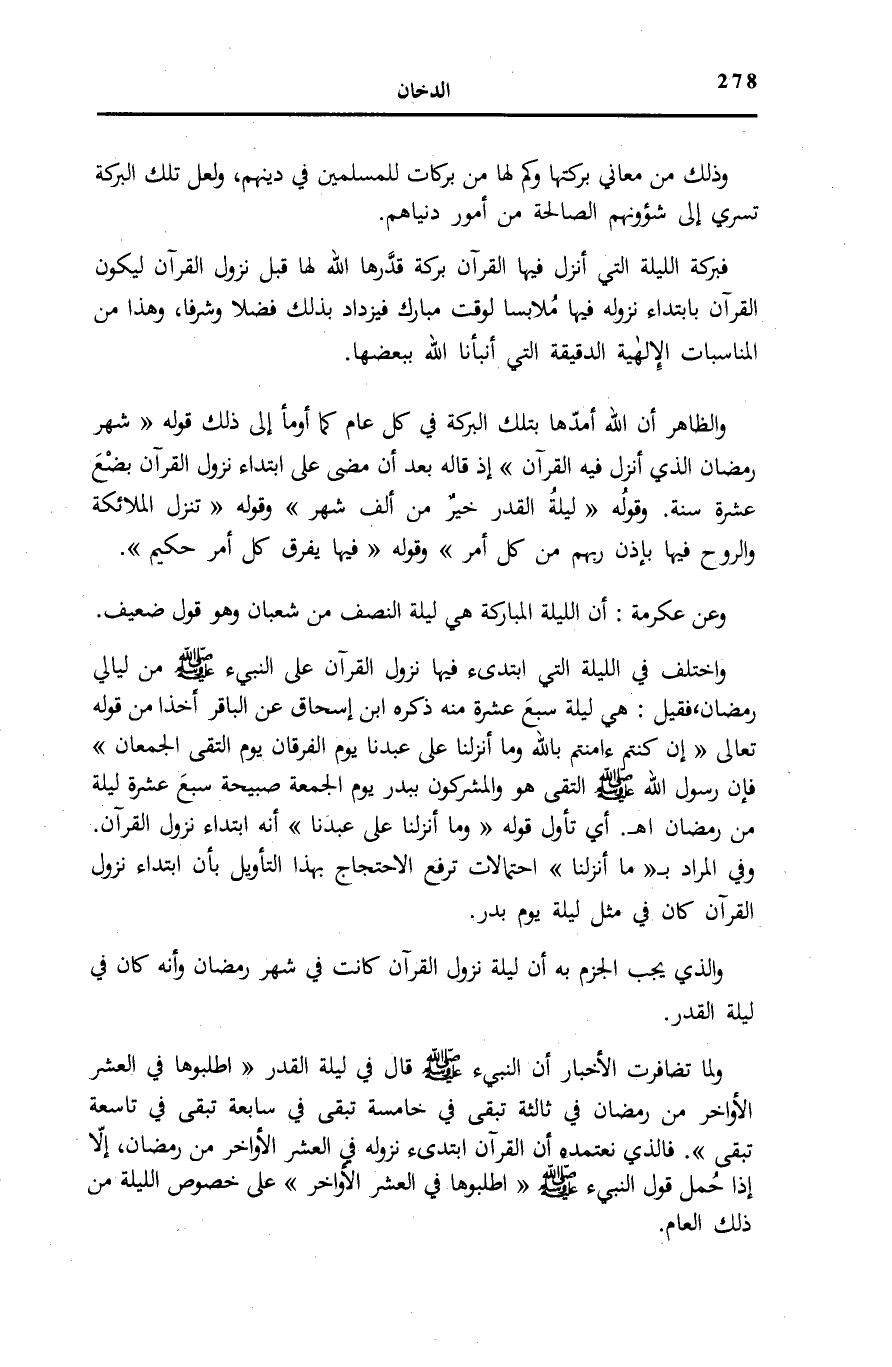 278
الدخان
وذلك من معاني بركتها وكم لها من بركات للمسلمين في دينهم، ولعل تلك البركة
تسري إلى شؤونهم الصالحة من أمور دنياهم.
فبركة الليلة التي أنزل فيها القرآن بركة قدَّرها الله لها قبل نزول القرآن ليكون
القرآن بابتداء نزوله فيها مُلابسا لوقت مبارك فيزداد بذلك فضلا وشرفا، وهذا من
المناسبات الإلٰهية الدقيقة التي أنبأنا الله ببعضها.
والظاهر أن الله أمدّها بتلك البركة في كل عام كما أومأ إلى ذلك قوله « شهر
رمضان الذي أنزل فيه القرآن » إذ قاله بعد أن مضى على ابتداء نزول القرآن بضْعَ
عشرة سنة. وقولُه « ليلةُ القدر خيرٌ من ألف شهر » وقوله « تنزل الملائكة
والروح فيها بإذن ربهم من كل أمر » وقوله « فيها يفرق كل أمر حكيم ».
وعن عكرمة : أن الليلة المباركة هي ليلة النصف من شعبان وهو قول ضعيف.
واختلف في الليلة التي ابتدىء فيها نزول القرآن على النبيء ﷺ من ليالي
رمضان،فقيل : هي ليلة سبعَ عشرة منه ذكره ابن إسحاق عن الباقر أخذا من قوله
تعالى « إن كنتم ءامنتم بالله وما أنزلنا على عبدنا يوم الفرقان يوم التقى الجمعان »
فإن رسول الله ﷺ التقى هو والمشركون ببدر يوم الجمعة صبيحة سبعَ عشرة ليلة
من رمضان اهـ. أي تأول قوله « وما أنزلنا على عبدنا » أنه ابتداء نزول القرآن.
وفي المراد بـ« ما أنزلنا » احتمالات ترفع الاحتجاج بهذا التأويل بأن ابتداء نزول
القرآن كان في مثل ليلة يوم بدر.
والذي يجب الجزم به أن ليلة نزول القرآن كانت في شهر رمضان وأنه كان في
ليلة القدر.
ولما تضافرت الأخبار أن النبيء ﷺ قال في ليلة القدر « اطلبوها في العشر
الأواخر من رمضان في ثالثة تبقى في خامسة تبقى في سابعة تبقى في تاسعة
تبقى ». فالذي نعتمده أن القرآن ابتدىء نزوله في العشر الأواخر من رمضان، إلّا
إذا حُمل قول النبيء ﷺ « اطلبوها في العشر الأواخر » على خصوص الليلة من
ذلك العام.